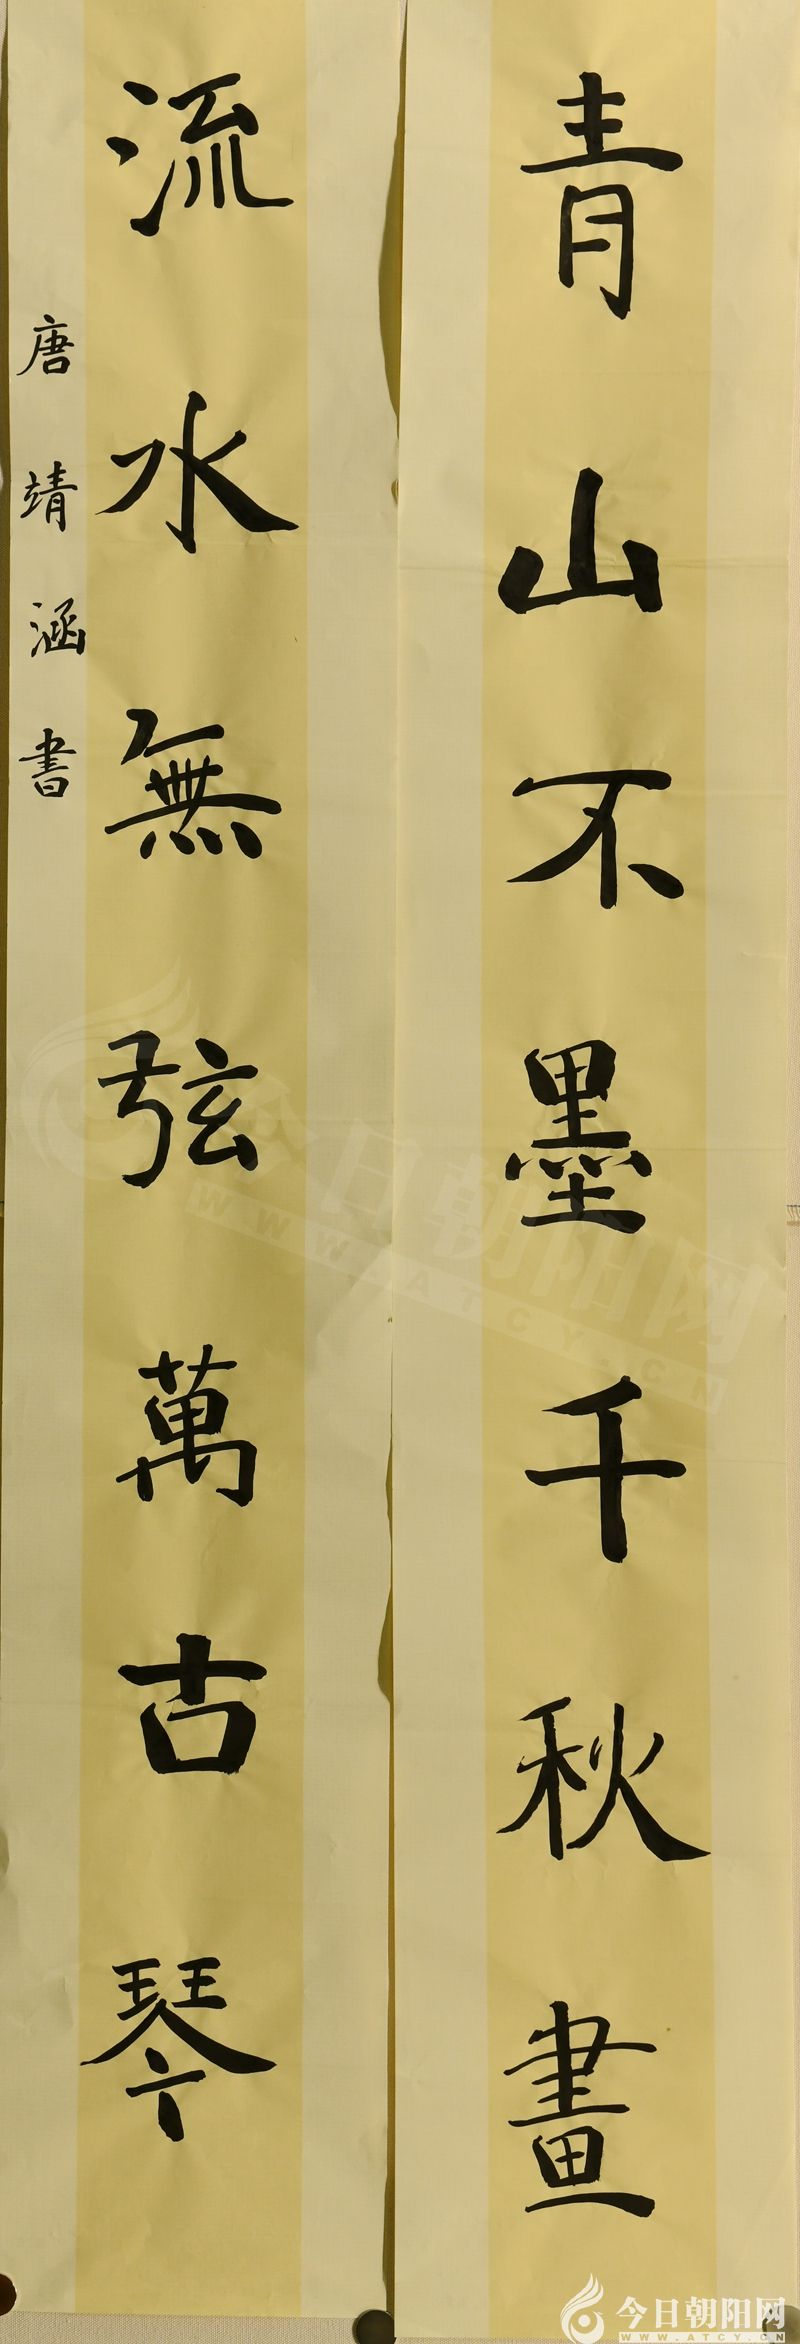 青山不墨千秋畫
流水無弦萬古琴
唐靖涵書
今日朝阳网
WWW.ATCY.CN
今日朝阳网
WWW.ATCY.CN